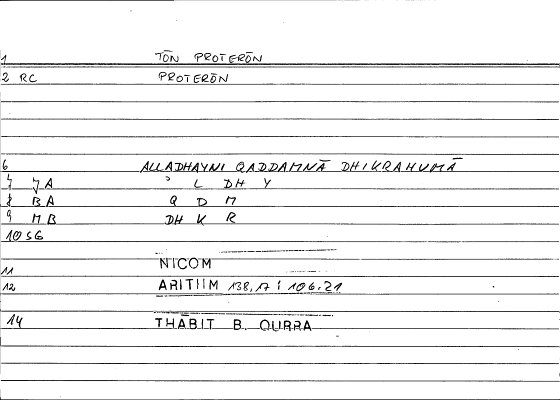 1 TŌN PROTERŌN
2 RC PROTERŌN
6 ALLADHAYNI QADDAMNĀ DHIKRAHUMĀ
7 JA ʾ L DH Y
8 BA Q D M
9 MB DH K R
10 SG
11 NICOM
12 ARITHM 138,17 ; 106.21
14 THĀBIT B. QURRA